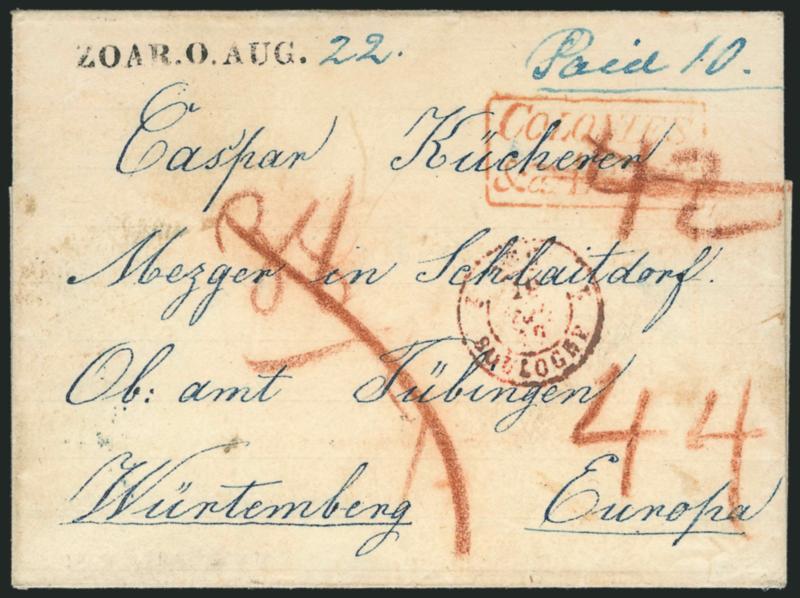 ZOAR.O.AUG. 22.
Paid 10.
COLONIES
&c.
Caspar Kücherer
42
24
Mezger in Schlaitdorf.
BOULOGNE
Ob: amt Tübingen
44
Würtemberg Europa